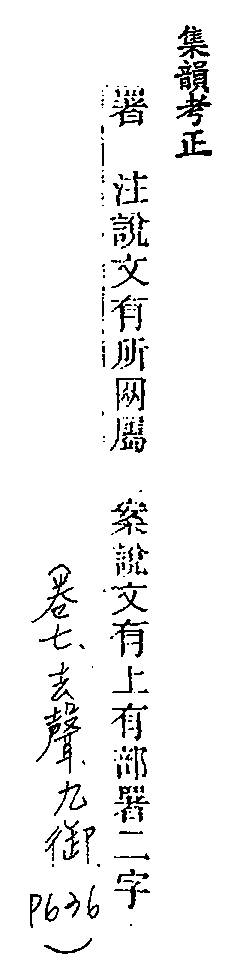 集韻考正
署　注說文有所网屬　案說文有上有部署二字
（卷七、去聲、九御 P636）